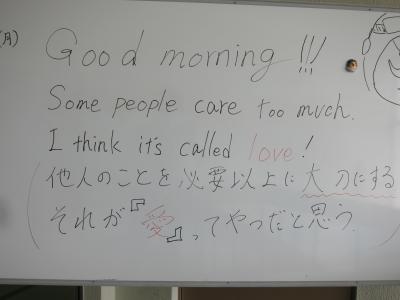 (月)
Good morning !!!
Some people care too much.
I think it's called love!
(他人のことを必要以上に大刀にする
それが『愛』ってやつだと思う.)